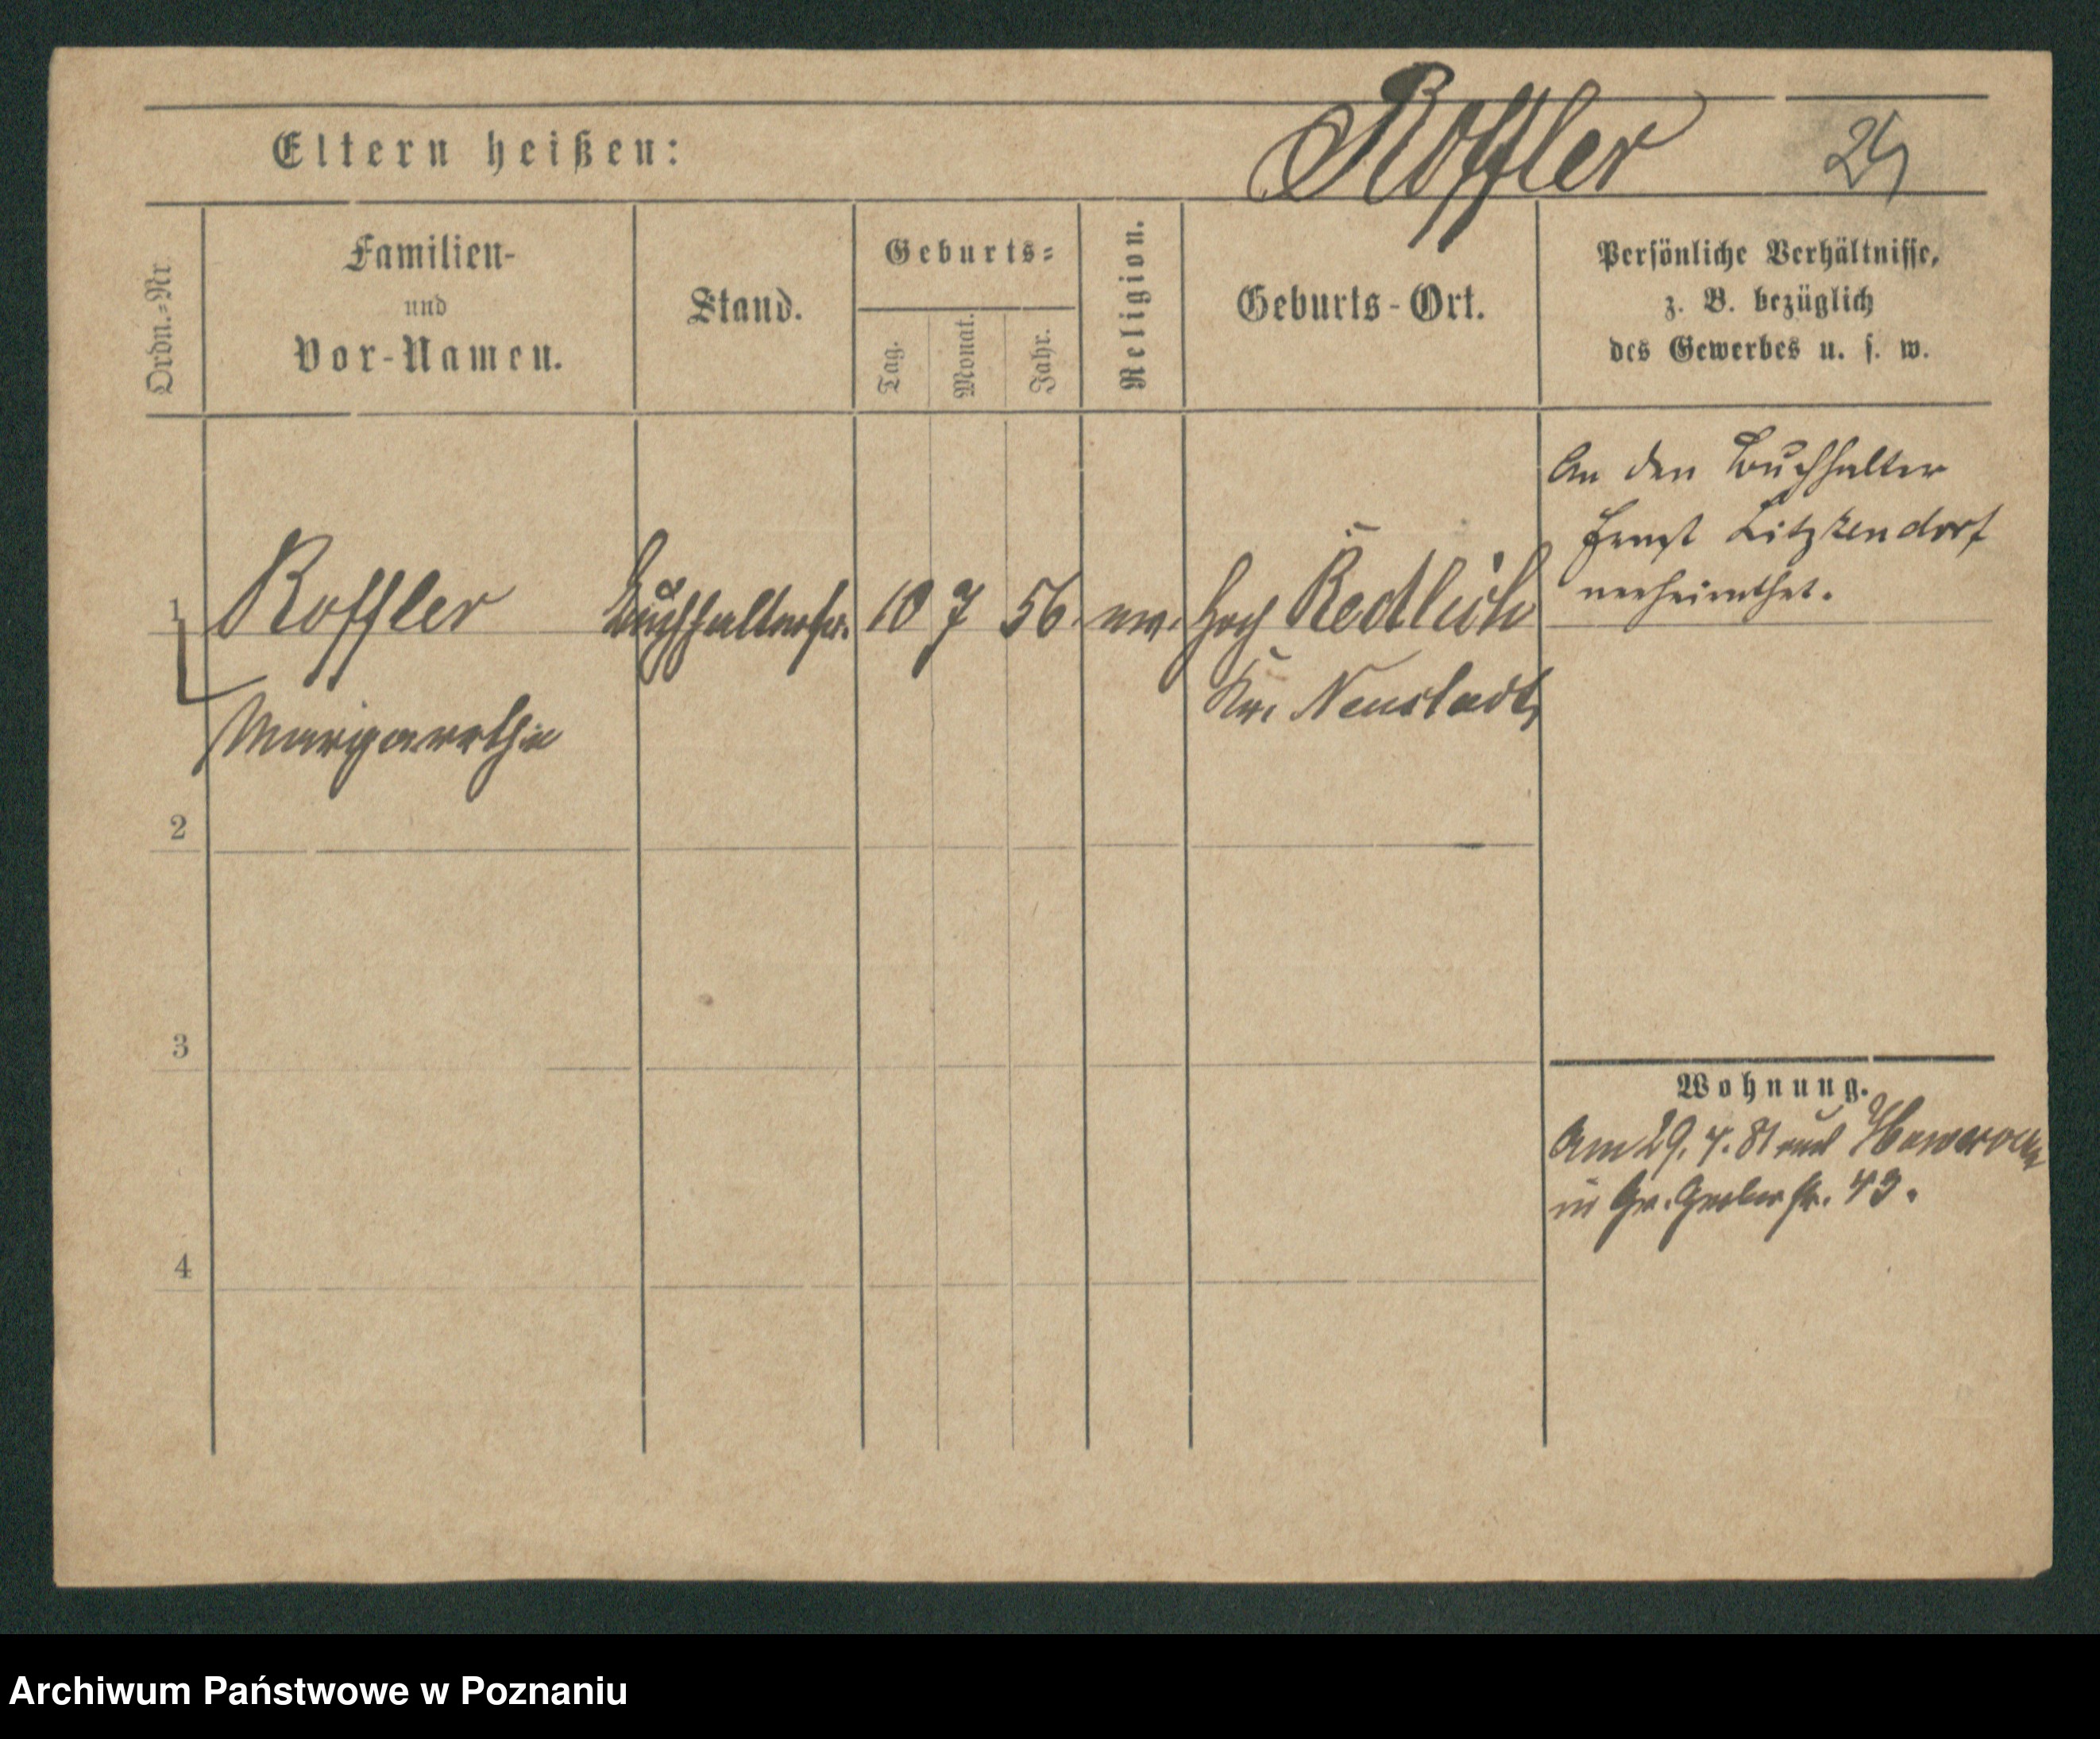 Eltern heißen: Roffler 24
Ordn.-Nr
Familien-
und
Vor-Namen.
Stand.
Geburts-
Tag.
Monat.
Jahr.
Religion.
Geburts-Ort.
Persönliche Verhältnisse,
z. B. bezüglich
des Gewerbes u. s. w.
An den Buchhalter
Ernst Litzkendorf
verheirathet.
1 Roffler Buchhalterfr. 10 7 56. ev. Redlich
Kr. Neustadt,
Margarethe
2
3
Wohnung.
Am 29. 4. 81 aus
in Gr. Gerberstr. 43.
4
Archiwum Państwowe w Poznaniu